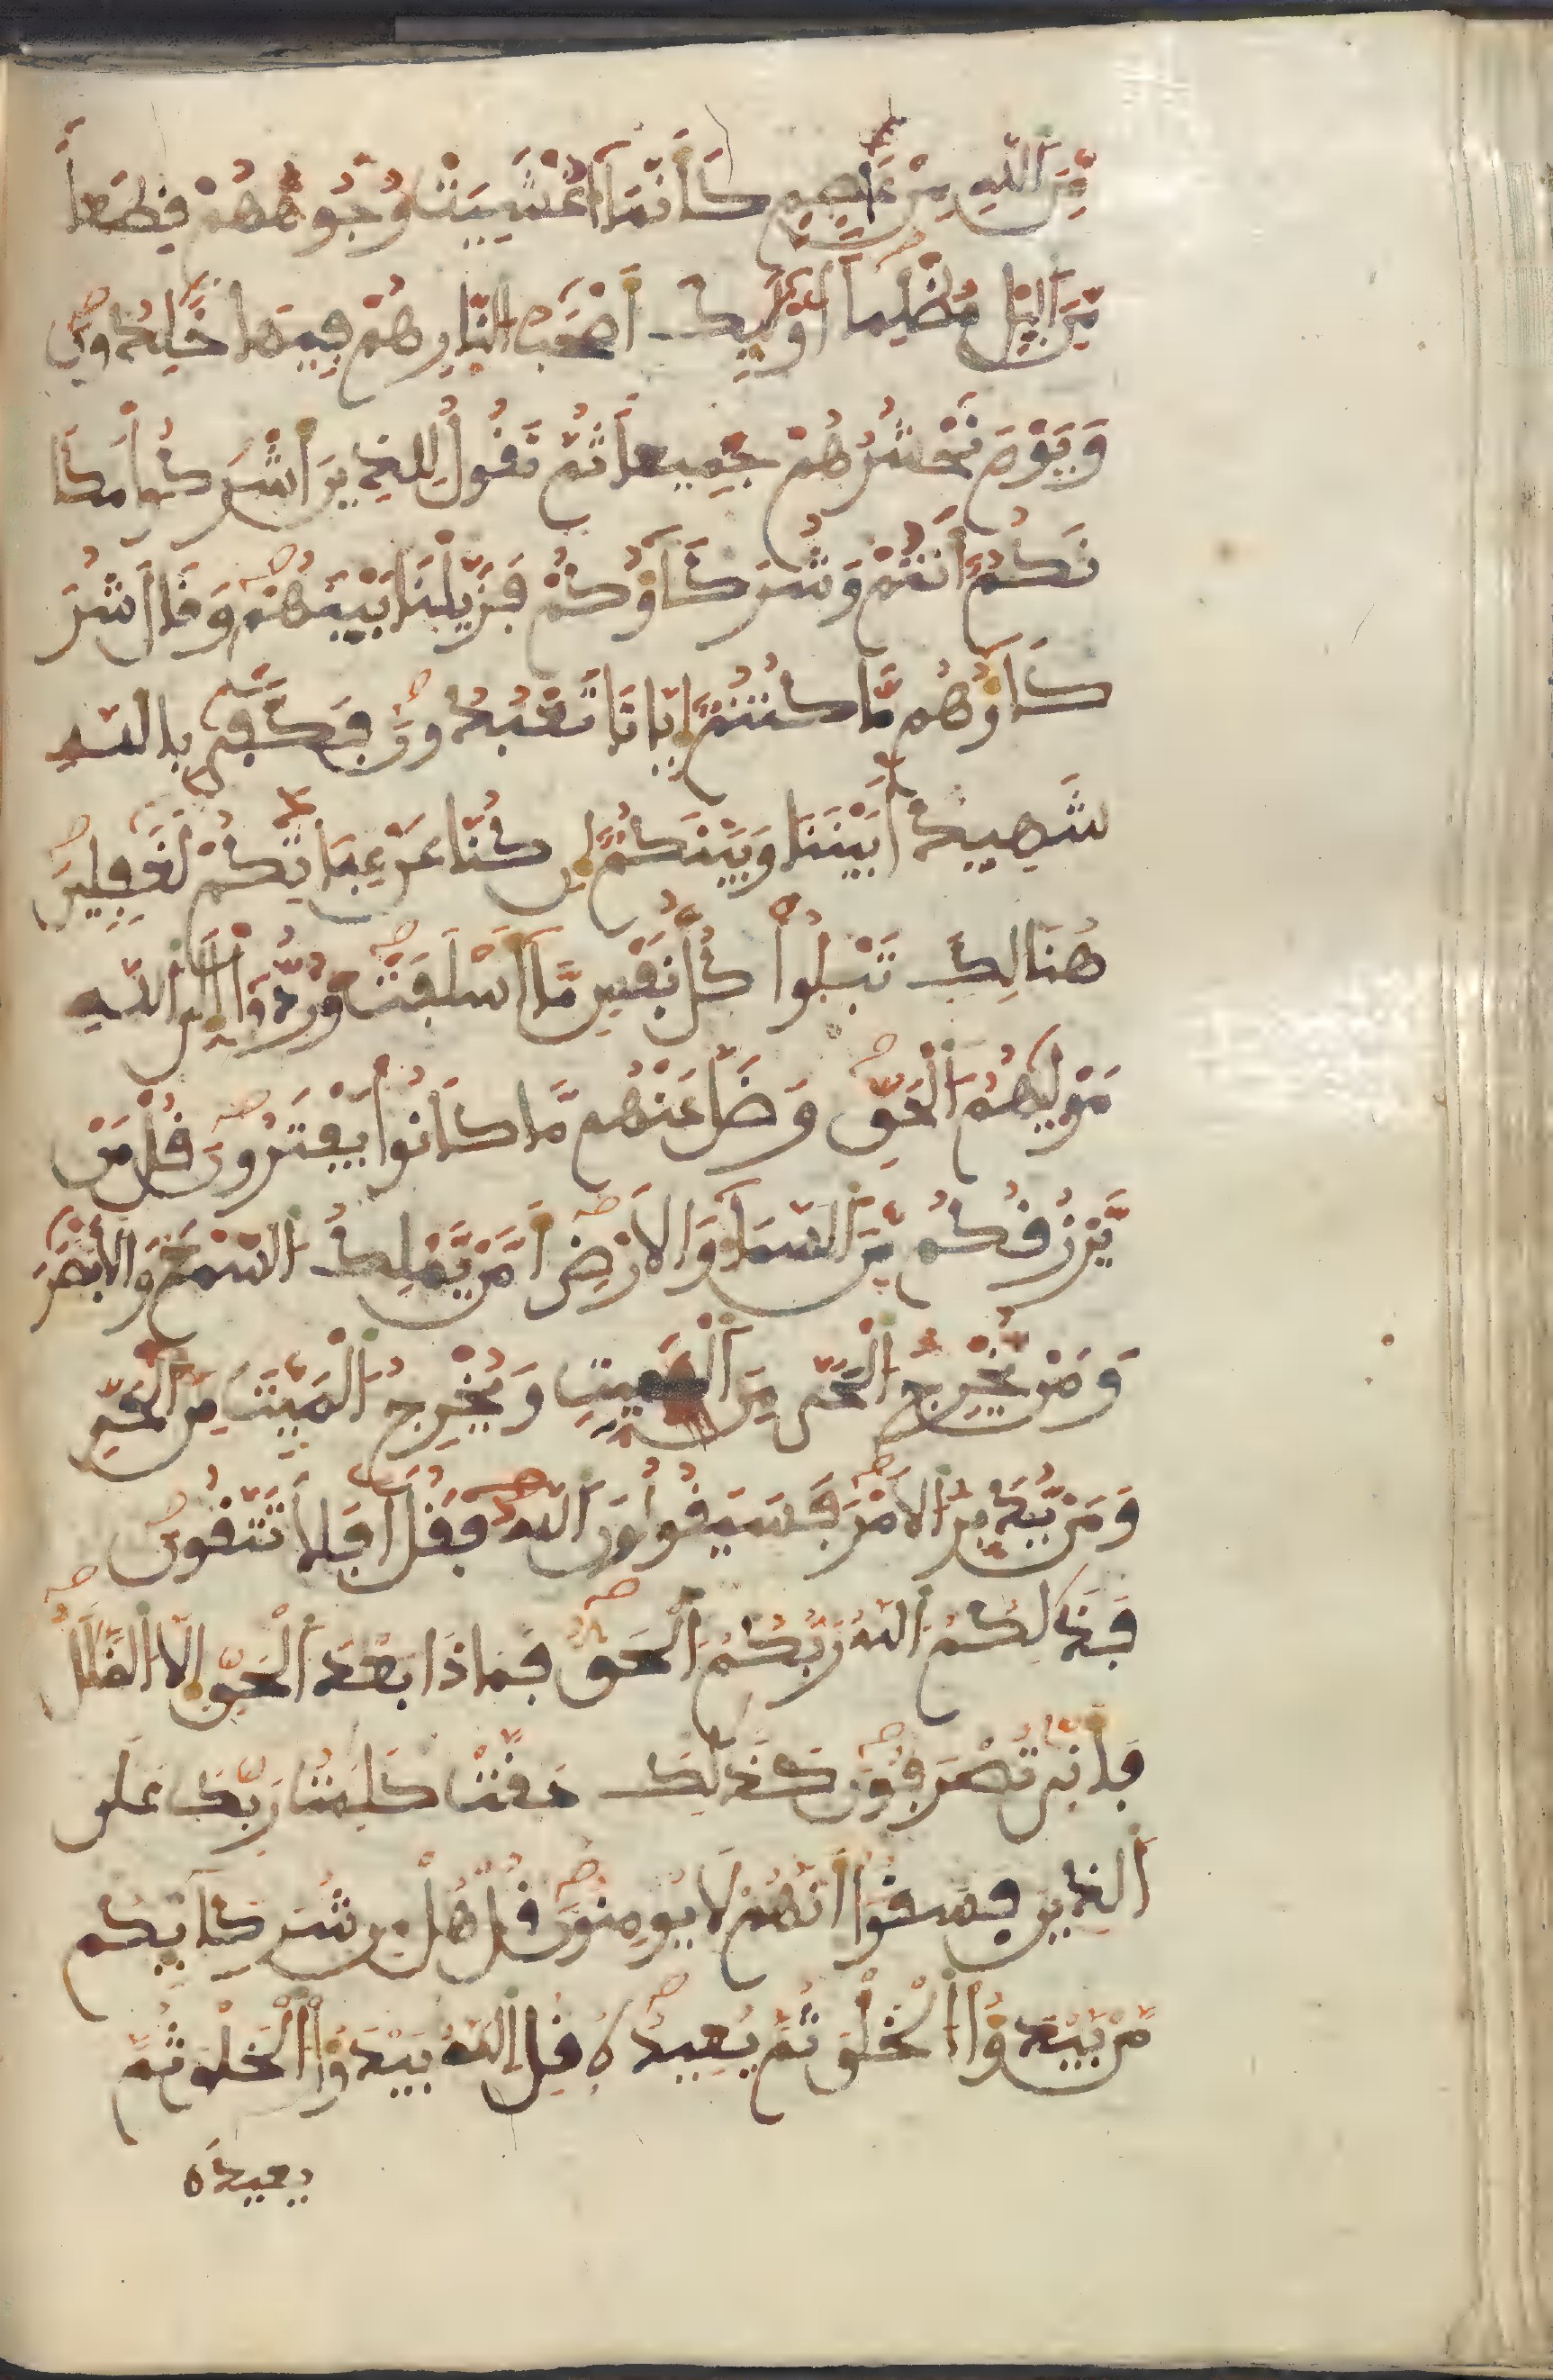 مِّنَ اَ۬للَّهِ مِنْ عَاصِمٖ كَأَنَّمَآ أُغْشِيَتْ وُجُوهُهُمْ قِطَعاٗ
مِّنَ اَ۬ليْلِ مُظْلِماً ا۟وْلَٰٓئِكَ أَصْحَٰبُ النّ۪ارِ هُمْ فِيهَا خَٰلِدُونَ
وَيَوْمَ نَحْشُرُهُمْ جَمِيعاٗ ثُمَّ نَقُولُ لِلذِينَ أَشْرَكُواْ مَكَا
نَكُمُۥٓ أَنتُمْ وَشُرَكَآؤُكُمْ فَزَيَّلْنَا بَيْنَهُمْ وَقَالَ شُرَ
كَآؤُهُم مَّا كُنتُمُۥٓ إِيَّانَا تَعْبُدُونَ فَكَفَىٰ بِاللَّهِ
شَهِيداَۢ بَيْنَنَا وَبَيْنَكُمُۥٓ إِن كُنَّا عَنْ عِبَادَتِكُمْ لَغَٰفِلِينَ
هُنَالِكَ تَبْلُواْ كُلُّ نَفْسٖ مَّآ أَسْلَفَتْ وَرُدُّوٓاْ إِلَى اَ۬للَّهِ
مَوْلَىٰهُمُ اُ۬لْحَقِّ وَضَلَّ عَنْهُم مَّا كَانُواْ يَفْتَرُونَ قُلْ مَنْ
يَّرْزُقُكُم مِّنَ اَ۬لسَّمَآءِ وَالَارْضِ أَمَّنْ يَّمْلِكُ اُ۬لسَّمْعَ وَالَابْصَٰرَ
وَمَنْ يُّخْرِجُ اُ۬لْحَيَّ مِنَ اَ۬لْمَيِّتِ وَيُخْرِجُ اُ۬لْمَيِّتَ مِنَ اَ۬لْحَيِّ
وَمَنْ يُّدَبِّرُ اُ۬لَامْرَ فَسَيَقُولُونَ اَ۬للَّهُ فَقُلَ اَفَلَا تَتَّقُونَ
فَذَٰلِكُمُ اُ۬للَّهُ رَبُّكُمُ اُ۬لْحَقُّ فَمَاذَا بَعْدَ اَ۬لْحَقِّ إِلَّا اَ۬لضَّلَٰلُ
فَأَنّ۪ىٰ تُصْرَفُونَ كَذَٰلِكَ حَقَّتْ كَلِمَٰتُ رَبِّكَ عَلَى
اَ۬لذِينَ فَسَقُوٓاْ أَنَّهُمْ لَا يُومِنُونَ قُلْ هَلْ مِن شُرَكَآئِكُم
مَّنْ يَّبْدَؤُاْ اُ۬لْخَلْقَ ثُمَّ يُعِيدُهُۥ قُلِ اِ۬للَّهُ يَبْدَؤُاْ اُ۬لْخَلْقَ ثُمَّ
يعيده